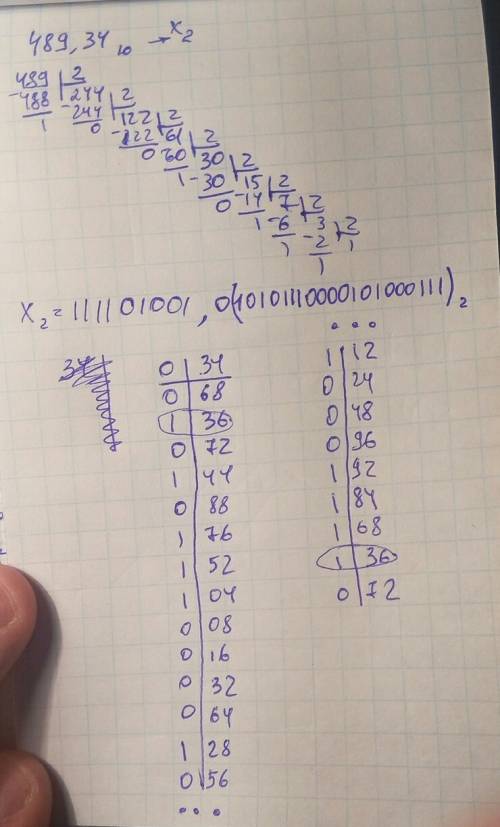 489,34₁₀ → x₂
489 | 2
-488 | -244 | 2
1 | 244 | 122 | 2
0 | -122 | 61 | 2
0 | 60 | 30 | 2
1 | -30 | 15 | 2
0 | -14 | 7 | 2
1 | -6 | 3 | 2
1 | -2 | 1
1
X₂ = 111101001, 0(10101110000101000111)₂
34
0 | 34
0 | 68
1 | 36
0 | 72
1 | 44
0 | 88
1 | 76
1 | 52
1 | 04
0 | 08
0 | 16
0 | 32
0 | 64
1 | 28
0 | 56
...
...
1 | 12
0 | 24
0 | 48
0 | 96
1 | 92
1 | 84
1 | 68
1 | 36
0 | 72